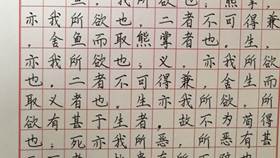 鱼，我所欲也，熊掌
亦我所欲也，二者不可得兼
，舍鱼而取熊掌者也。生
亦我所欲也；义，亦我所欲
也，二者不可得兼，舍生而
取义者也。生亦我所欲，所
欲有甚于生者，故不为苟得
也；死亦我所恶，所恶有甚